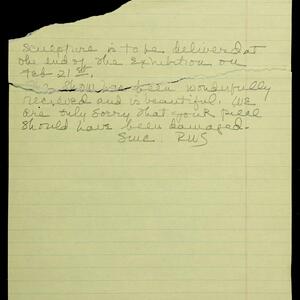 sculpture is to be delivered at
the end of the exhibition on
Feb 21st.
The show has been wonderfully
received and is beautiful. We
are only sorry that your piece
should have been damaged.
Sinc. RWS